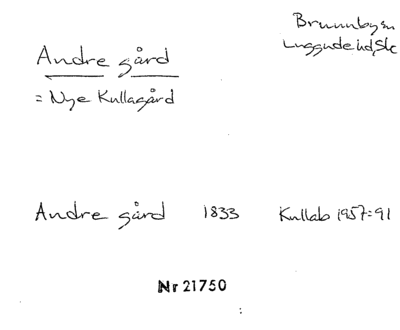 Brunnby sn
Luggude hd, Sk
Andre gård
= Nye Kullagård
Andre gård 1833 Kullab 1957:91
Nr 21750